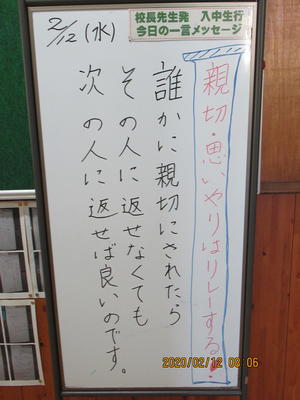 2/12(水)
校長先生発 入中生行
今日の一言メッセージ
親切・思いやりはリレーする!
誰かに親切にされたら
その人に返せなくても
次の人に返せば良いのです。
2020/02/12 08:06